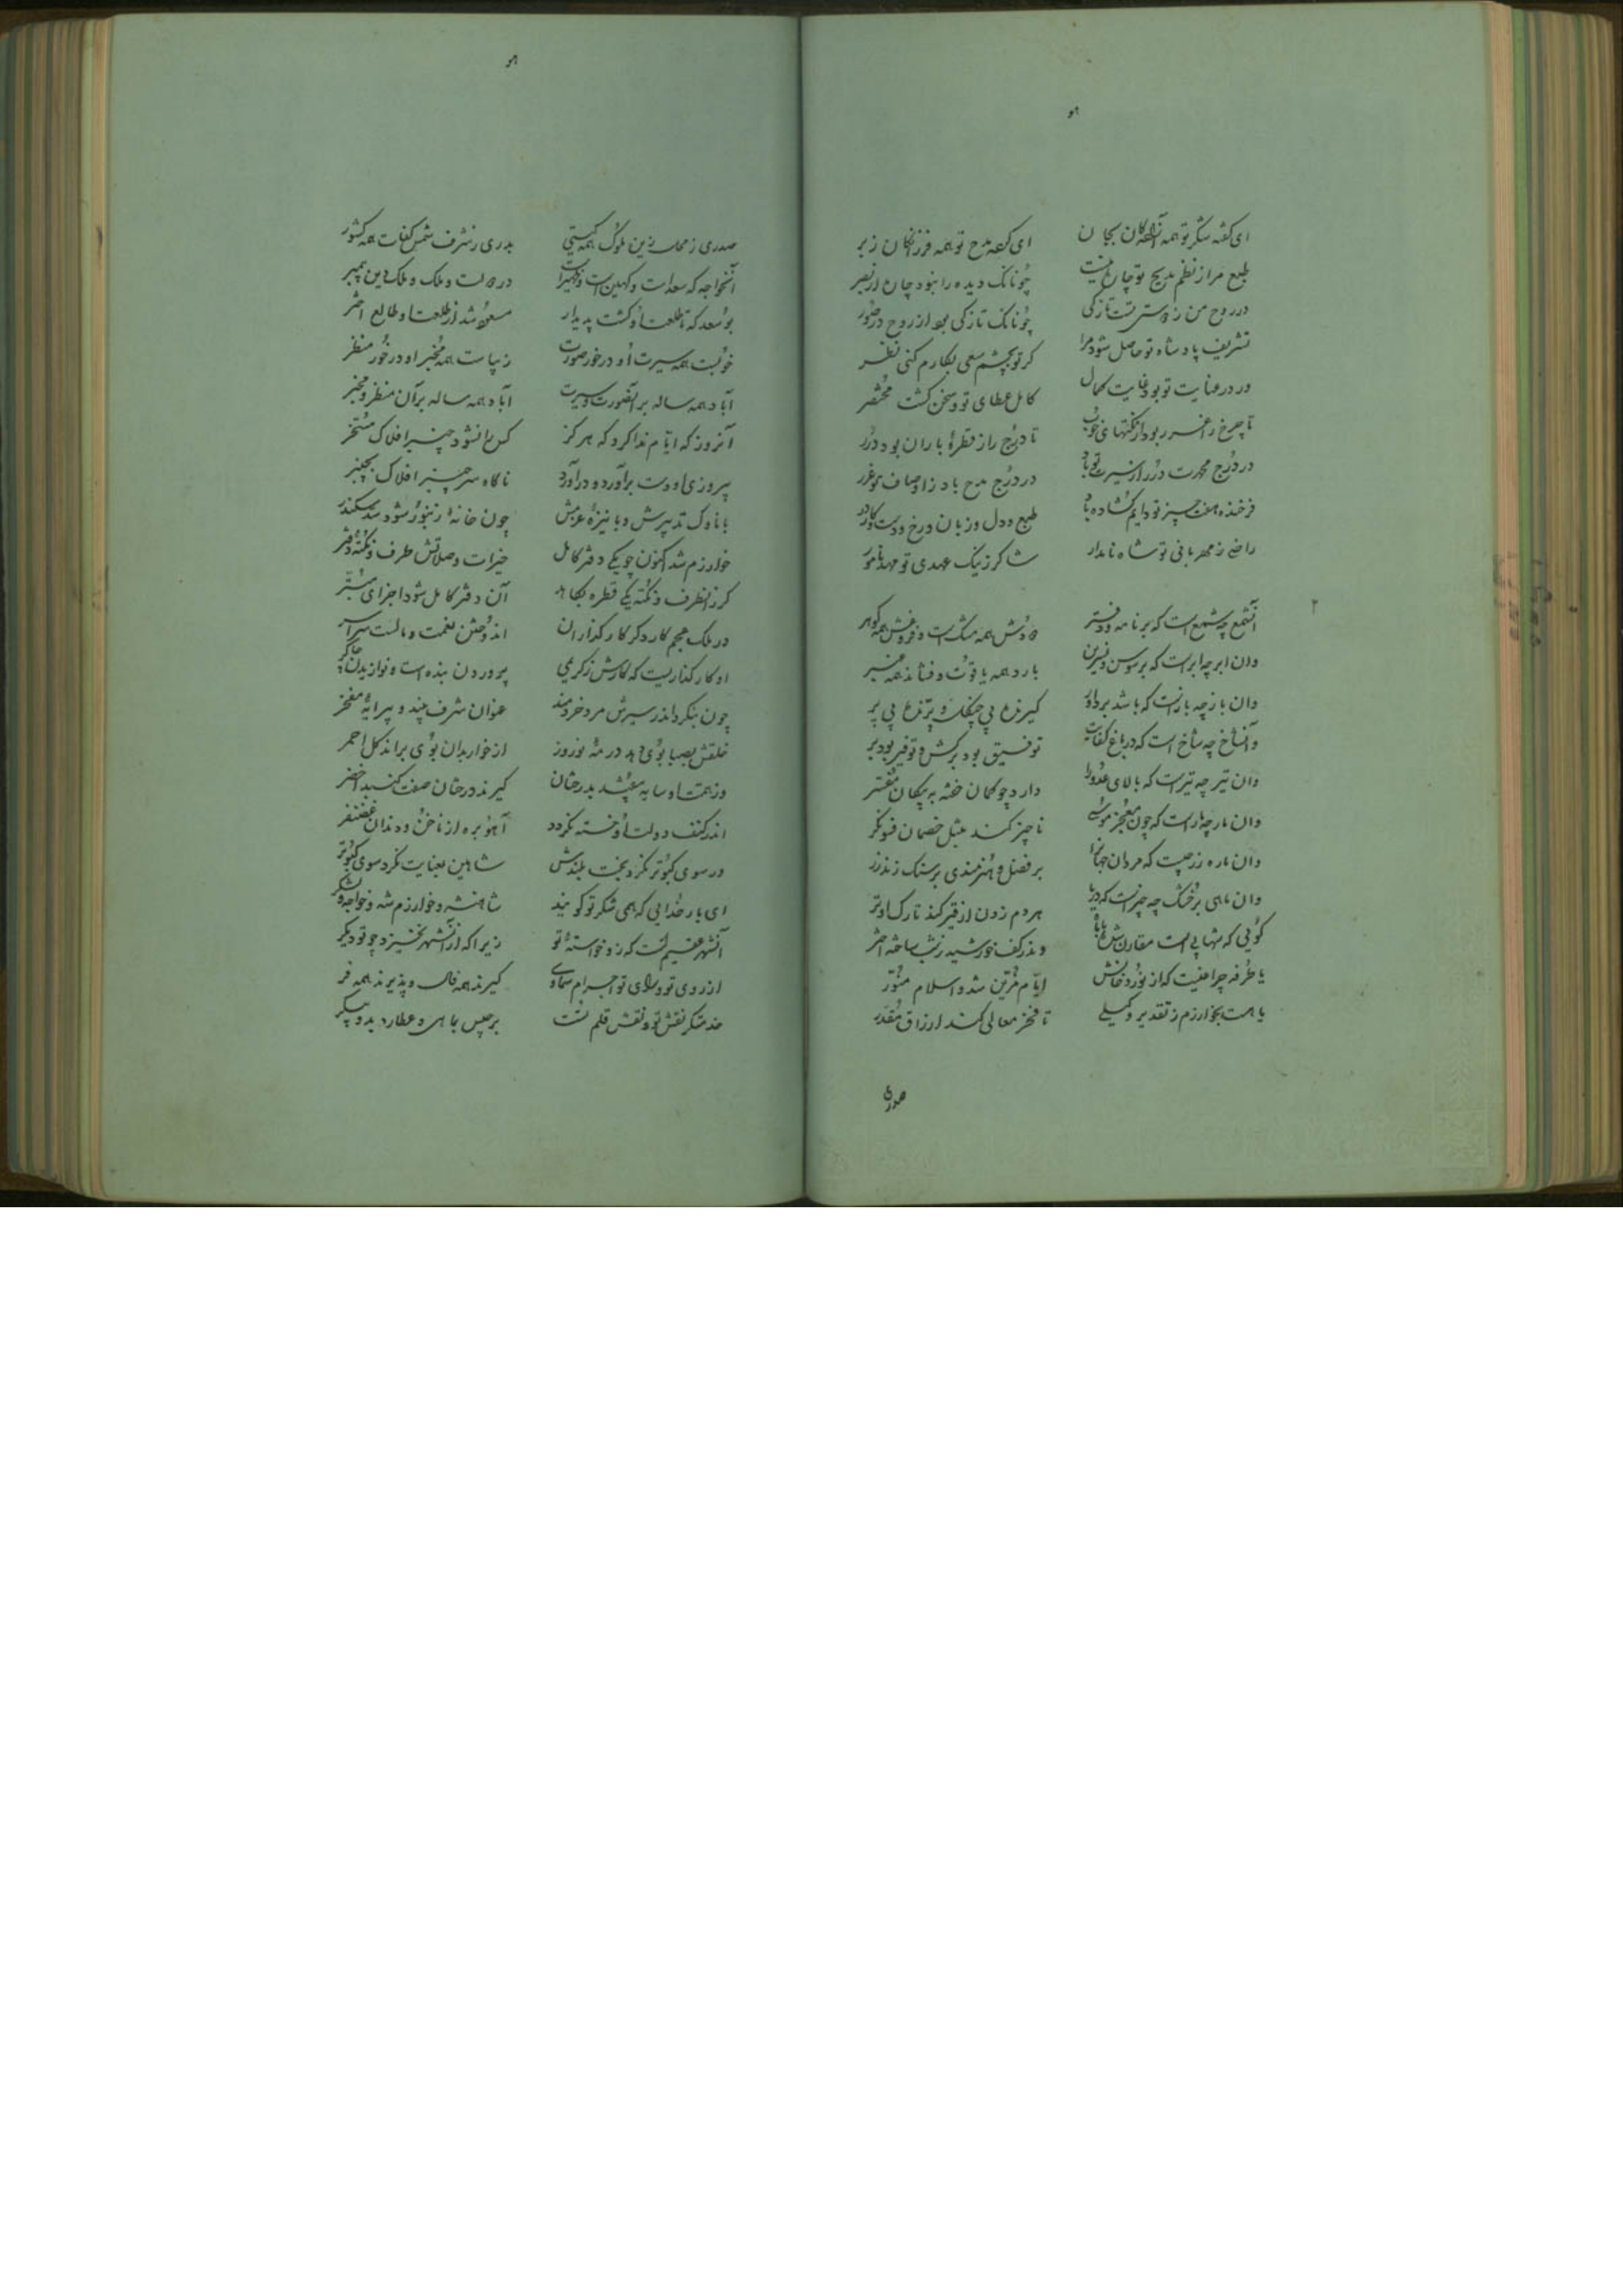 هو
ای گفته شکر تو همه آزادگان بجان ای گفته مدح تو همه فرزانگان ز بر
طبع مرا ز نظم مدیح تو چاره نیست چونانک دیده را نبود چاره از بصر
در روح من ز دوستی تست تازگی چونانک تازگی بود از روح در صور
تشریف پادشاه تو حاصل شود مرا گر تو بچشم سعی بکارم کنی نظر
ور در عنایت تو بود غایت کمال کامل عطای تو و سخن گشت مختصر
تا چرخ را بود از نکتهای خوب تا درج را ز قطرهٔ باران بود درر
در درج محمدت درر از سیرت تو باد در درج مدح باد ز اوصاف تو غرر
فرخنده هفت چیز تو دایم گشاده باد طبع و دل و زبان و رخ و دست و کار و در
راضی ز مهربانی تو شاه نامدار شاکر ز نیک عهدی تو
آنشمع چه شمع است که بر نامه و دفتر دودش همه مشک است و فروغش همه گوهر
وان ابر چه ابر است که بر سوسن و نسرین بارد همه یاقوت و فشاند همه عنبر
وان باز چه باز است که باشد بر او گیرنده بی چنگل و پرنده بی پر
وآنشاخ چه شاخ است که در باغ کفایت توفیق بود برگش و توفیر بود بر
وان تیر چه تیر است که بالای عدو را دارد چو کمان خفته به پیکان مقشر
وان مار چه مار است که چون معجز موسی ناچیز کند خصمان فسونگر
وان ماده زر چیست که مردان جهانرا بر فضل و هنرمندی بر سنگ زند زر
وان ماهی بر خشک چه چیز است که دریا هر دم زدن از قیر کند تارک او تر
گوئی که شهابی است مقارن شده با ماه وندر کف خورشید ز شب ساخته اختر
یا طرفه چراغیست که از نور و دخانش ایام مزین شد و اسلام منور
یا هست بخوارزم ز تقدیر وکیلی تا فخر معالی کند ارزاق مقدر
صدری
هو
صدری ز محاسن زین ملوک همه گیتی بدری ز شرف شمس کفات همه کشور
آنخواجه که سعد است در دولت و ملک و ملک و دین پیمبر
بوسعد که تا طلعت او گشت پدیدار مسعود شد از طلعت او طالع اختر
خوبست همه سیرت او در خور صورت زیباست همه مخبر او در خور منظر
آباد همه ساله بر آنصورت و سیرت آباد همه ساله بر آن منظر و مخبر
آنروز که ایام ندا کرد که هرگز کس را نشود چنبر افلاک مسخر
پیروزی او دست برآورد و درآورد ناگاه سر چنبر افلاک بچنبر
با ناوک تدبیرش و با نیزهٔ عزمش چون خانهٔ زنبور شود سد سکندر
خوارزم شد اکنون چو یکی دفتر کامل خیرات و صلاتش طرف و نکتهٔ دفتر
گر زانطرف و نکته یکی قطره بکاهد آن دفتر کامل شود اجزای مبتر
در ملک عجم کار دگر کارگذاران اندوختن نعمت و مالست سراسر
او کارگذاریست که کارش ز کریمی پروردن بنده است و نوازیدن چاکر
چون بنگرد اندر سیرش مرد خردمند عنوان شرف بیند و پیرایهٔ مفخر
خلقش بصبا بوی دهد در مه نوروز از خار بدان بوی براند گل احمر
وز همت او سایه بیفتد بدرختان گیرند درختان صفت گنبد اخضر
اندر کنف دولت او خسته نگردد آهو بره از ناخن و دندان غضنفر
ور سوی کبوتر نگرد بخت بلندش شاهین بعنایت نگرد سوی کبوتر
ای بار خدایی که همی شکر تو گویند شاهنشه و خوارزم شه و خواجه و لشکر
آنشهر عقیم است که زو خواستهٔ تو زیرا که از آنشهر نخیزد چو تو دیگر
از روی تو و رای تو اجرام سماوی گیرند همه فال و پذیرند همه فر
نقش تو و نقش قلم تست برجیس بماهی و عطارد بدو پیکر